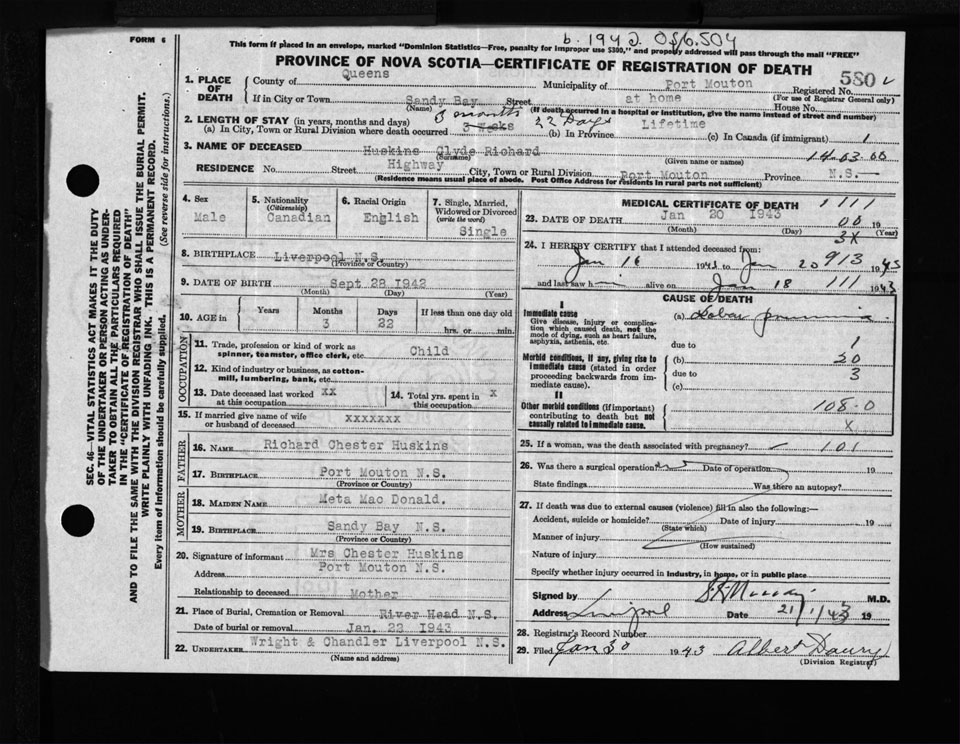 FORM 6
b. 1942. 016.504
This form if placed in an envelope, marked "Dominion Statistics—Free, penalty for improper use $300," and properly addressed will pass through the mail "FREE"
PROVINCE OF NOVA SCOTIA—CERTIFICATE OF REGISTRATION OF DEATH
580
1. PLACE OF DEATH
County of Queens Municipality of Port Mouton Registered No.
(For use of Registrar General only)
If in City or Town Sandy Bay Street at home House No.
(Name) (If death occurred in a hospital or institution, give the name instead of street and number)
2. LENGTH OF STAY (in years, months and days) 3 months 22 Days
(a) In City, Town or Rural Division where death occurred 3 Weeks (b) In Province Lifetime (c) In Canada (if immigrant) 1
3. NAME OF DECEASED Huskins Clyde Richard 14.03.00
(Surname) (Given name or names)
RESIDENCE No. Street Highway City, Town or Rural Division Port Mouton Province N.S.
(Residence means usual place of abode. Post Office Address for residents in rural parts not sufficient)
4. Sex Male
5. Nationality (Citizenship) Canadian
6. Racial Origin English
7. Single, Married, Widowed or Divorced (write the word) Single
8. BIRTHPLACE Liverpool N.S.
(Province or Country)
9. DATE OF BIRTH Sept 28 1942
(Month) (Day) (Year)
10. AGE in Years Months 3 Days 22 If less than one day old hrs. or min.
OCCUPATION
11. Trade, profession or kind of work as spinner, teamster, office clerk, etc. Child
12. Kind of industry or business, as cotton-mill, lumbering, bank, etc.
13. Date deceased last worked at this occupation xx
14. Total yrs. spent in this occupation x
15. If married give name of wife or husband of deceased xxxxxxx
FATHER
16. NAME Richard Chester Huskins
17. BIRTHPLACE Port Mouton N.S.
(Province or Country)
MOTHER
18. MAIDEN NAME Meta Mac Donald.
19. BIRTHPLACE Sandy Bay N.S.
(Province or Country)
20. Signature of informant Mrs Chester Huskins
Address Port Mouton N.S.
Relationship to deceased Mother
21. Place of Burial, Cremation or Removal River Head N.S.
Date of burial or removal Jan. 22 1943
22. UNDERTAKER Wright & Chandler Liverpool N.S.
(Name and address)
MEDICAL CERTIFICATE OF DEATH 1111
23. DATE OF DEATH Jan 20 1943 00
(Month) (Day) (Year)
3X
24. I HEREBY CERTIFY that I attended deceased from:
Jan 16 1943 to Jan 20 1943 913
and last saw him alive on Jan 18 1943 111
CAUSE OF DEATH
I
Immediate cause
Give disease, injury or complication which caused death, not the mode of dying, such as heart failure, asphyxia, asthenia, etc.
(a) Lobar pneumonia
due to 1
Morbid conditions, if any, giving rise to immediate cause (stated in order proceeding backwards from immediate cause).
(b) 20
due to 3
(c)
II
Other morbid conditions (if important) contributing to death but not causally related to immediate cause.
108-0
x
25. If a woman, was the death associated with pregnancy? 101
26. Was there a surgical operation? no Date of operation 19
State findings Was there an autopsy?
27. If death was due to external causes (violence) fill in also the following:—
Accident, suicide or homicide? Date of injury 19
(State which)
Manner of injury
(How sustained)
Nature of injury
Specify whether injury occurred in industry, in home, or in public place
Signed by M.D.
Address Liverpool Date 21/1/43 19
28. Registrar's Record Number
29. Filed Jan 30 1943 Albert Daury
(Division Registrar)
SEC. 46—VITAL STATISTICS ACT MAKES IT THE DUTY
OF THE UNDERTAKER OR PERSON ACTING AS UNDER-
TAKER TO OBTAIN ALL THE PARTICULARS REQUIRED
IN THE "CERTIFICATE OF REGISTRATION OF DEATH"
AND TO FILE THE SAME WITH THE DIVISION REGISTRAR WHO SHALL ISSUE THE BURIAL PERMIT.
WRITE PLAINLY WITH UNFADING INK. THIS IS A PERMANENT RECORD.
Every item of information should be carefully supplied. (See reverse side for instructions.)